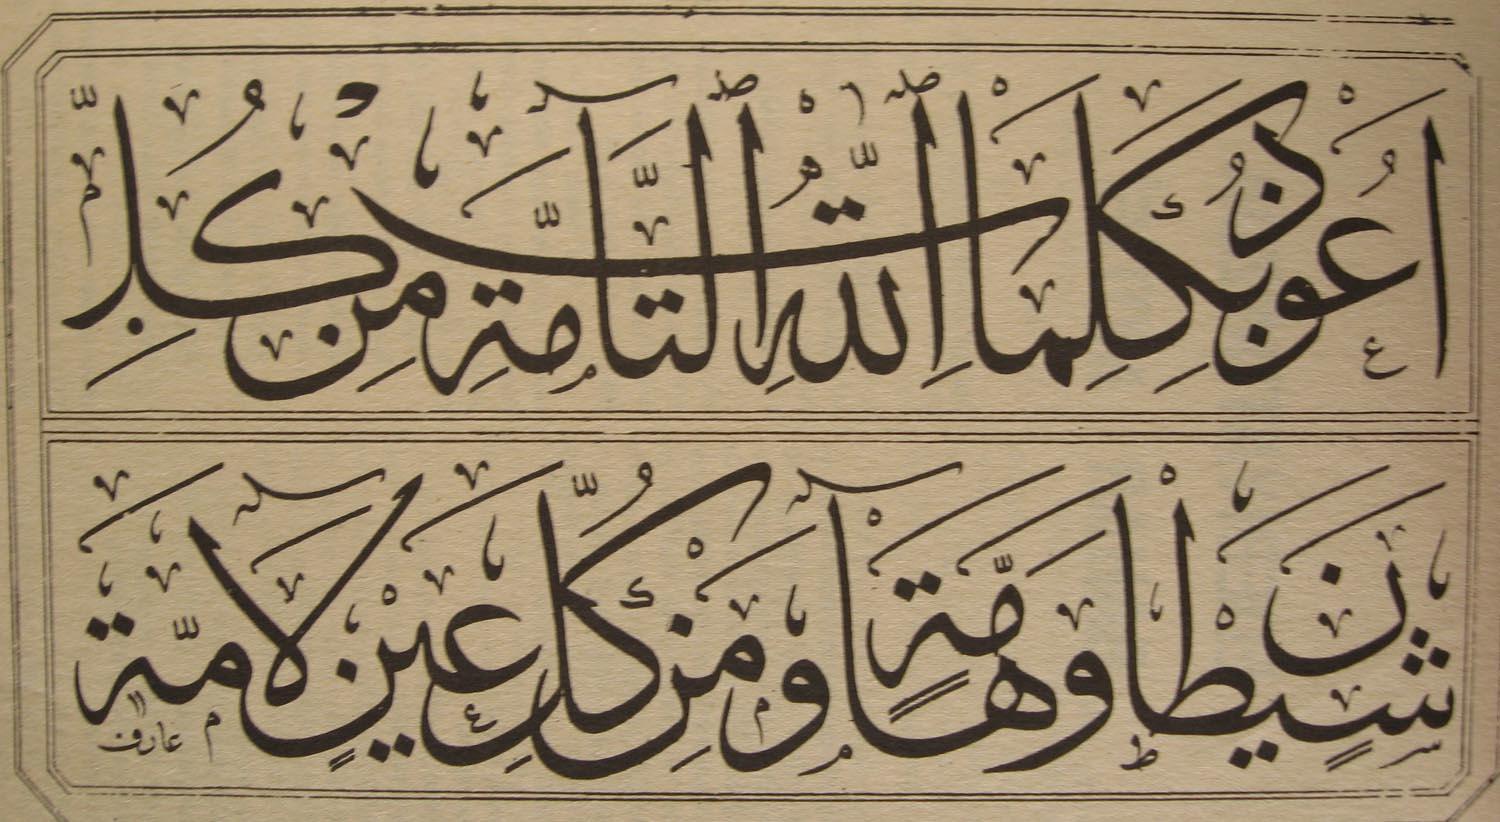 أَعُوذُ بِكَلِمَاتِ اللّٰهِ التَّآمَّةِ مِنْ كُلِّ
شَيْطَانٍ وَهَآمَّةٍ وَمِنْ كُلِّ عَيْنٍ لَآمَّةٍ
عارف